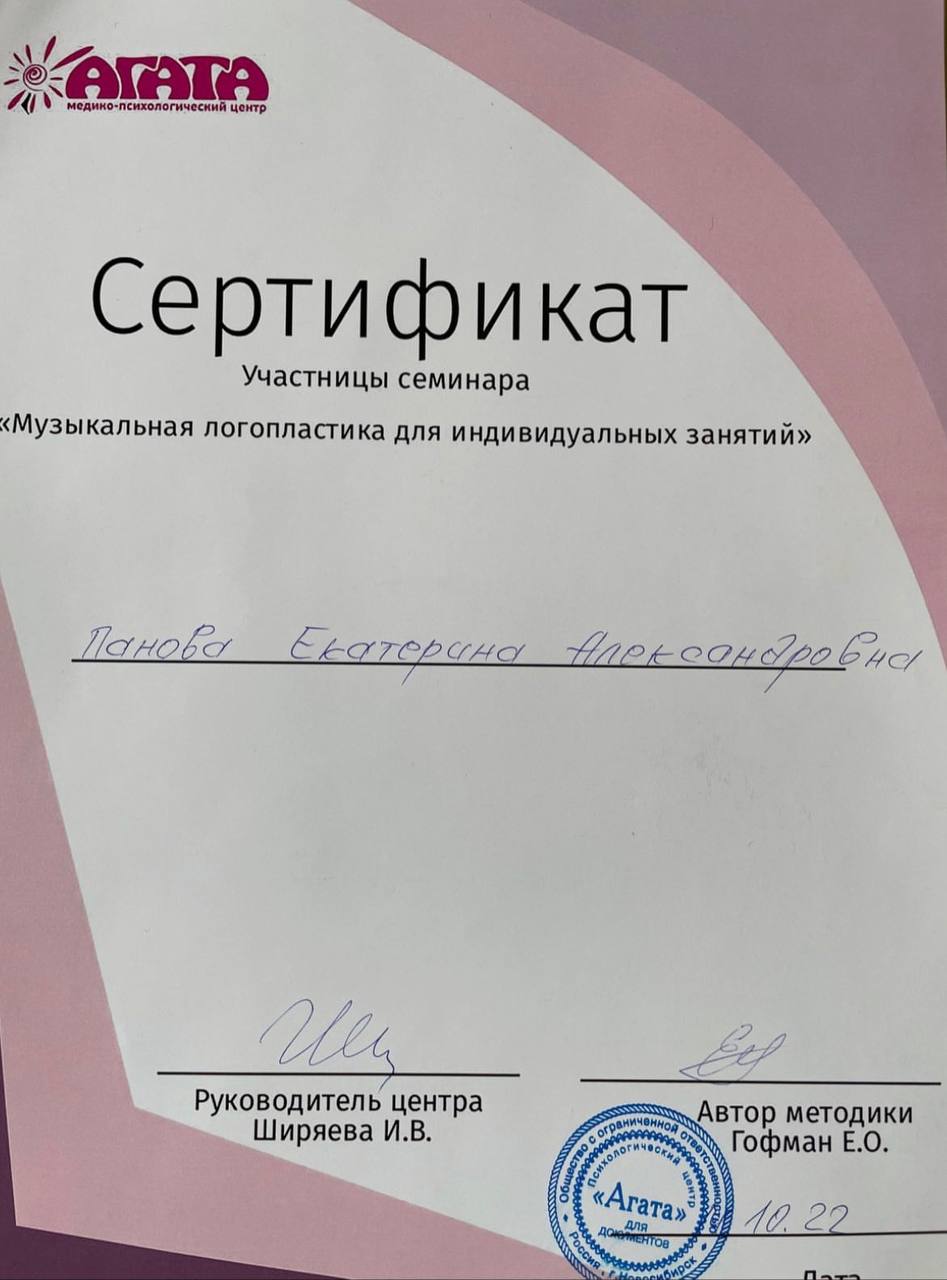 АГАТА
медико-психологический центр
Сертификат
Участницы семинара
«Музыкальная логопластика для индивидуальных занятий»
Панова Екатерина Александровна
Руководитель центра
Ширяева И.В.
Автор методики
Гофман Е.О.
Общество с ограниченной ответственностью
Психологический центр
«Агата»
для
документов
Россия · г.Новосибирск
10.22
Дата